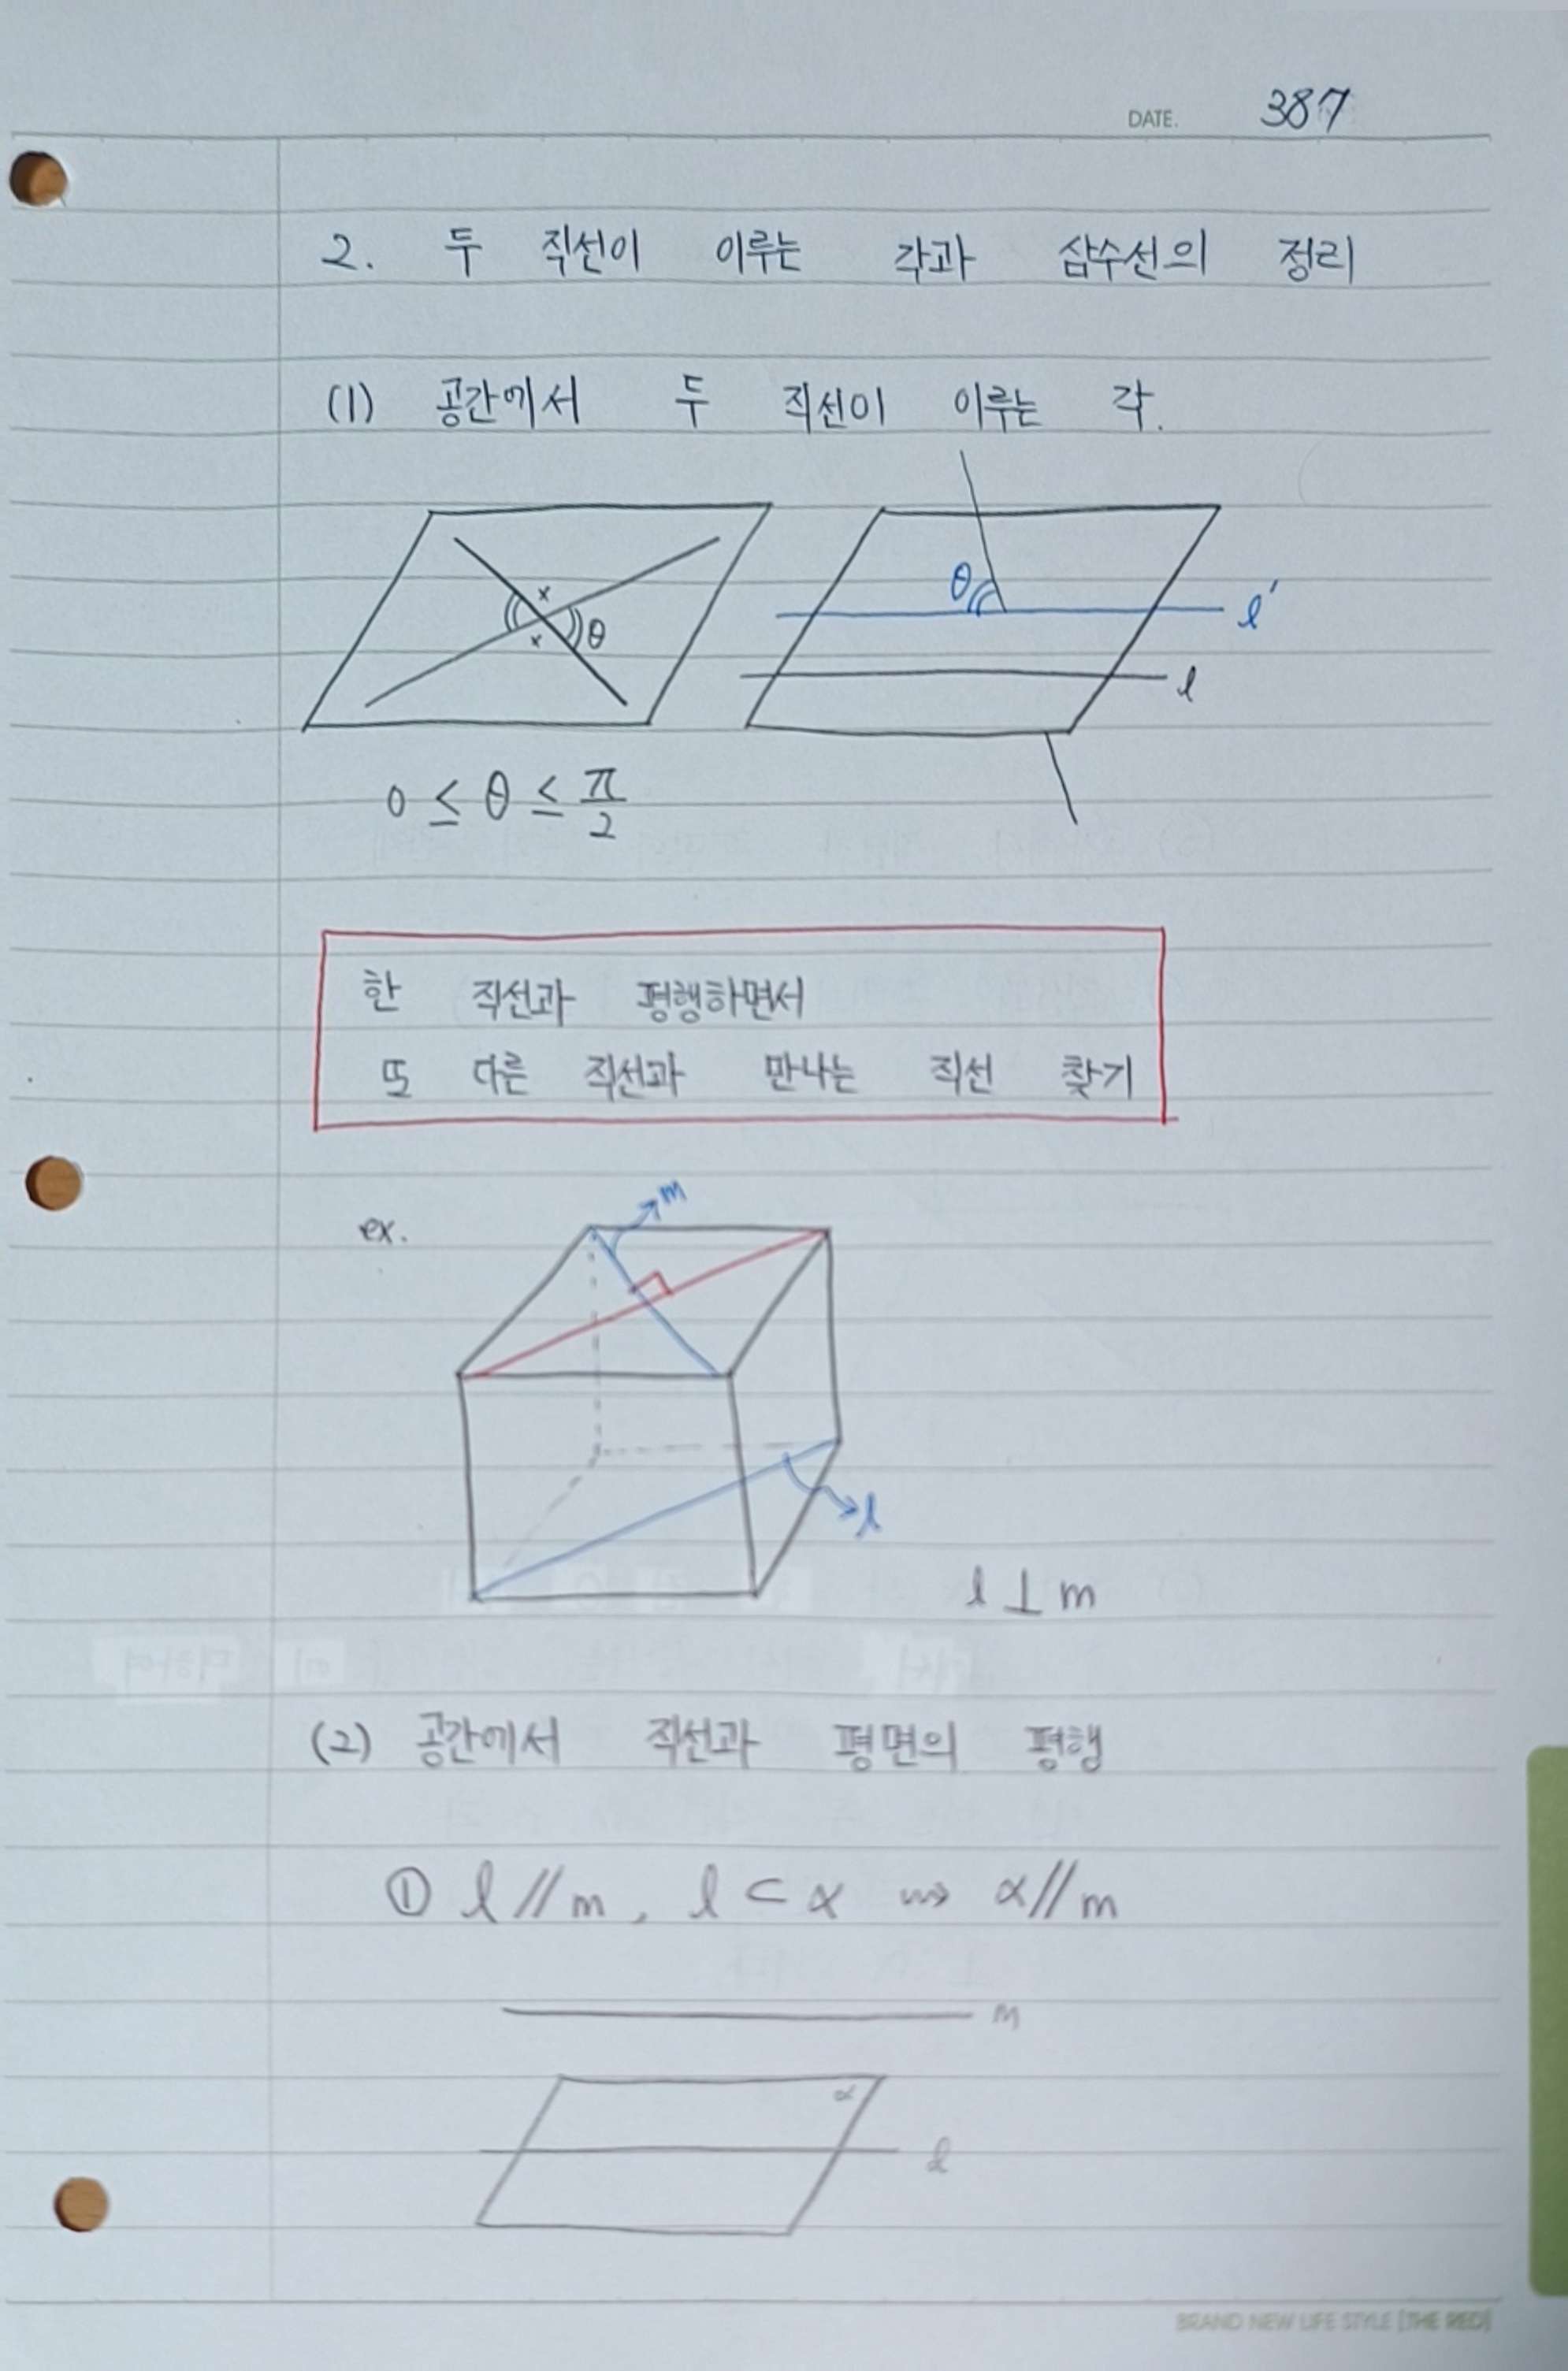 DATE. 387
2. 두 직선이 이루는 각과 삼수선의 정리
(1) 공간에서 두 직선이 이루는 각.
x
θ
x
θ
l'
l
0 ≤ θ ≤ π/2
한 직선과 평행하면서
또 다른 직선과 만나는 직선 찾기
ex.
m
l
l ⊥ m
(2) 공간에서 직선과 평면의 평행
① l // m, l ⊂ α ⇝ α // m
m
α
l
BRAND NEW LIFE STYLE [THE RED]